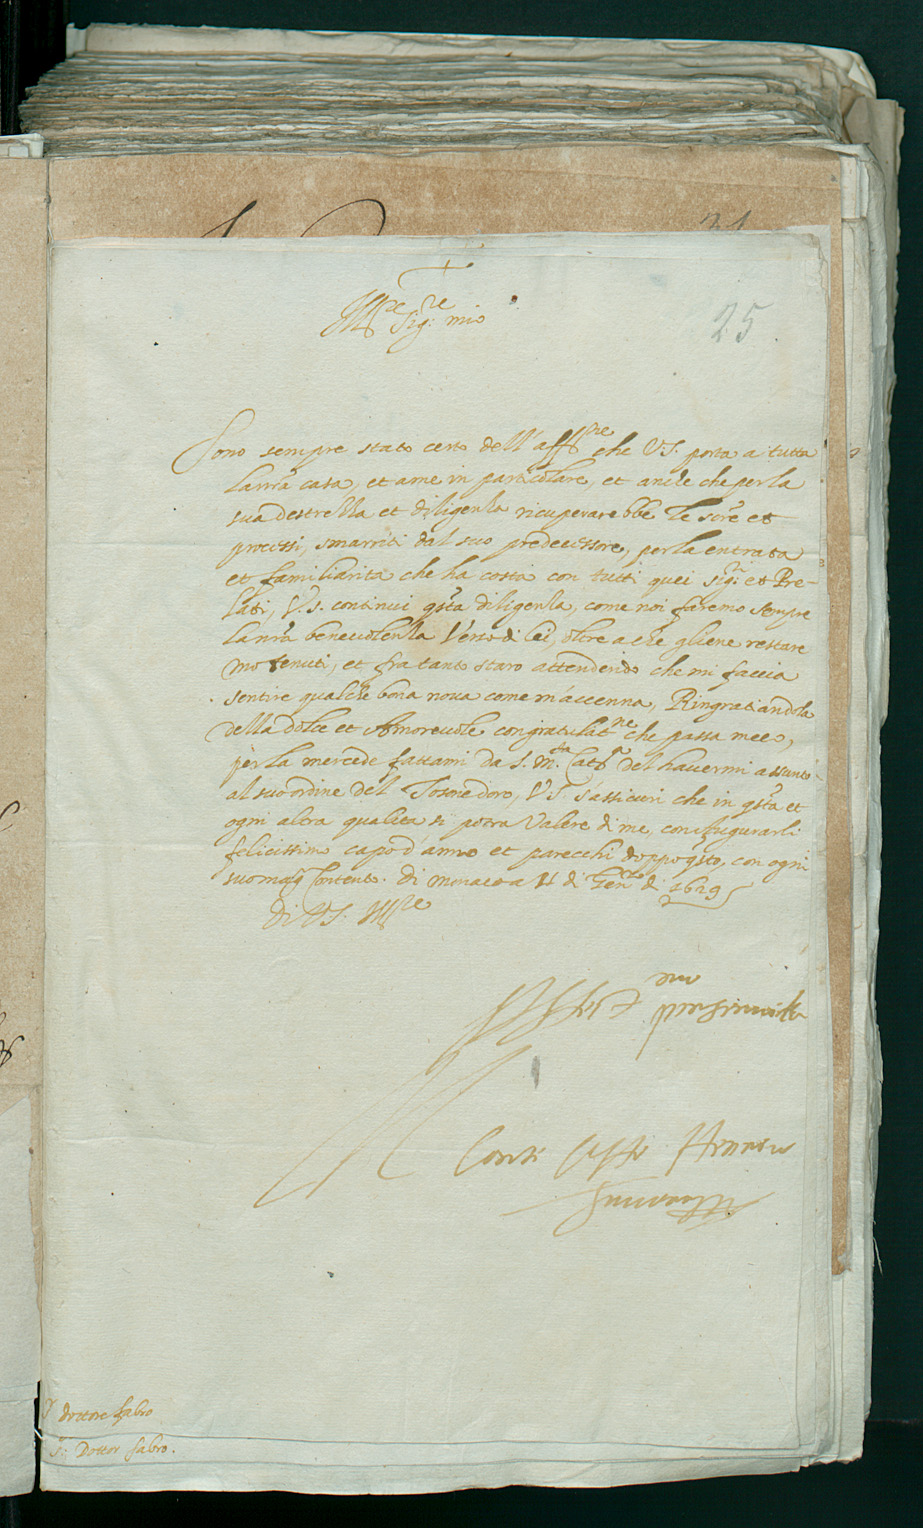 31
25
Ill.re Sig.re mio
Sono sempre stato certo dell'aff.ne che V.S. porta a tutta
la nrã casa, et a me in particolare, et anche che per la
sua destrezza et diligenza ricuperarebbe le scrẽ et
processi, smarriti dal suo predecessore, per la entrata
et familiarita che ha costà con tutti quei sig.ri et Pre-
lati, V.S. continui qsta diligenza, come noi faremo sempre
la nrã benevolenza verso di lei, oltre a che gliene restare
mo tenuti, et fra tanto staro attendendo che mi faccia
sentire qualche bona nova come m'accenna, Ringratiandola
della dolce et Amorevole congratulat.ne che passa meco,
per la mercede fattami da S. M.tà Catt.ca del havermi assunto
al suo ordine del Tosone doro, V.S. s'assicuri che in qsta et
ogni altra qualita si potra valere di me, con augurarli
felicissimo capo d'anno et parecchi doppo qsto, con ogni
suo magg. contento. di monaco a di Gen.ro di 1629
Di V.S. Ill.re
Conte
Dottore fabro
S.: Dottor fabro.